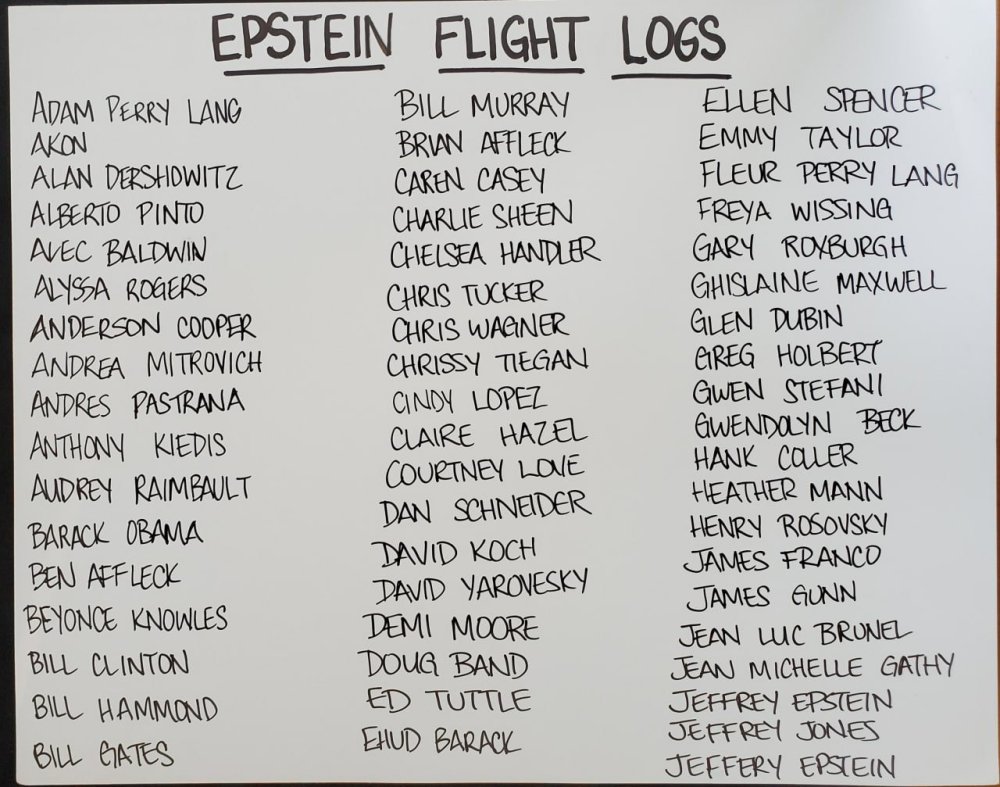 EPSTEIN FLIGHT LOGS
ADAM PERRY LANG
AKON
ALAN DERSHOWITZ
ALBERTO PINTO
ALEC BALDWIN
ALYSSA ROGERS
ANDERSON COOPER
ANDREA MITROVICH
ANDRES PASTRANA
ANTHONY KIEDIS
AUDREY RAIMBAULT
BARACK OBAMA
BEN AFFLECK
BEYONCE KNOWLES
BILL CLINTON
BILL HAMMOND
BILL GATES
BILL MURRAY
BRIAN AFFLECK
CAREN CASEY
CHARLIE SHEEN
CHELSEA HANDLER
CHRIS TUCKER
CHRIS WAGNER
CHRISSY TIEGAN
CINDY LOPEZ
CLAIRE HAZEL
COURTNEY LOVE
DAN SCHNEIDER
DAVID KOCH
DAVID YAROVESKY
DEMI MOORE
DOUG BAND
ED TUTTLE
EHUD BARACK
ELLEN SPENCER
EMMY TAYLOR
FLEUR PERRY LANG
FREYA WISSING
GARY ROXBURGH
GHISLAINE MAXWELL
GLEN DUBIN
GREG HOLBERT
GWEN STEFANI
GWENDOLYN BECK
HANK COLLER
HEATHER MANN
HENRY ROSOVSKY
JAMES FRANCO
JAMES GUNN
JEAN LUC BRUNEL
JEAN MICHELLE GATHY
JEFFREY EPSTEIN
JEFFREY JONES
JEFFERY EPSTEIN